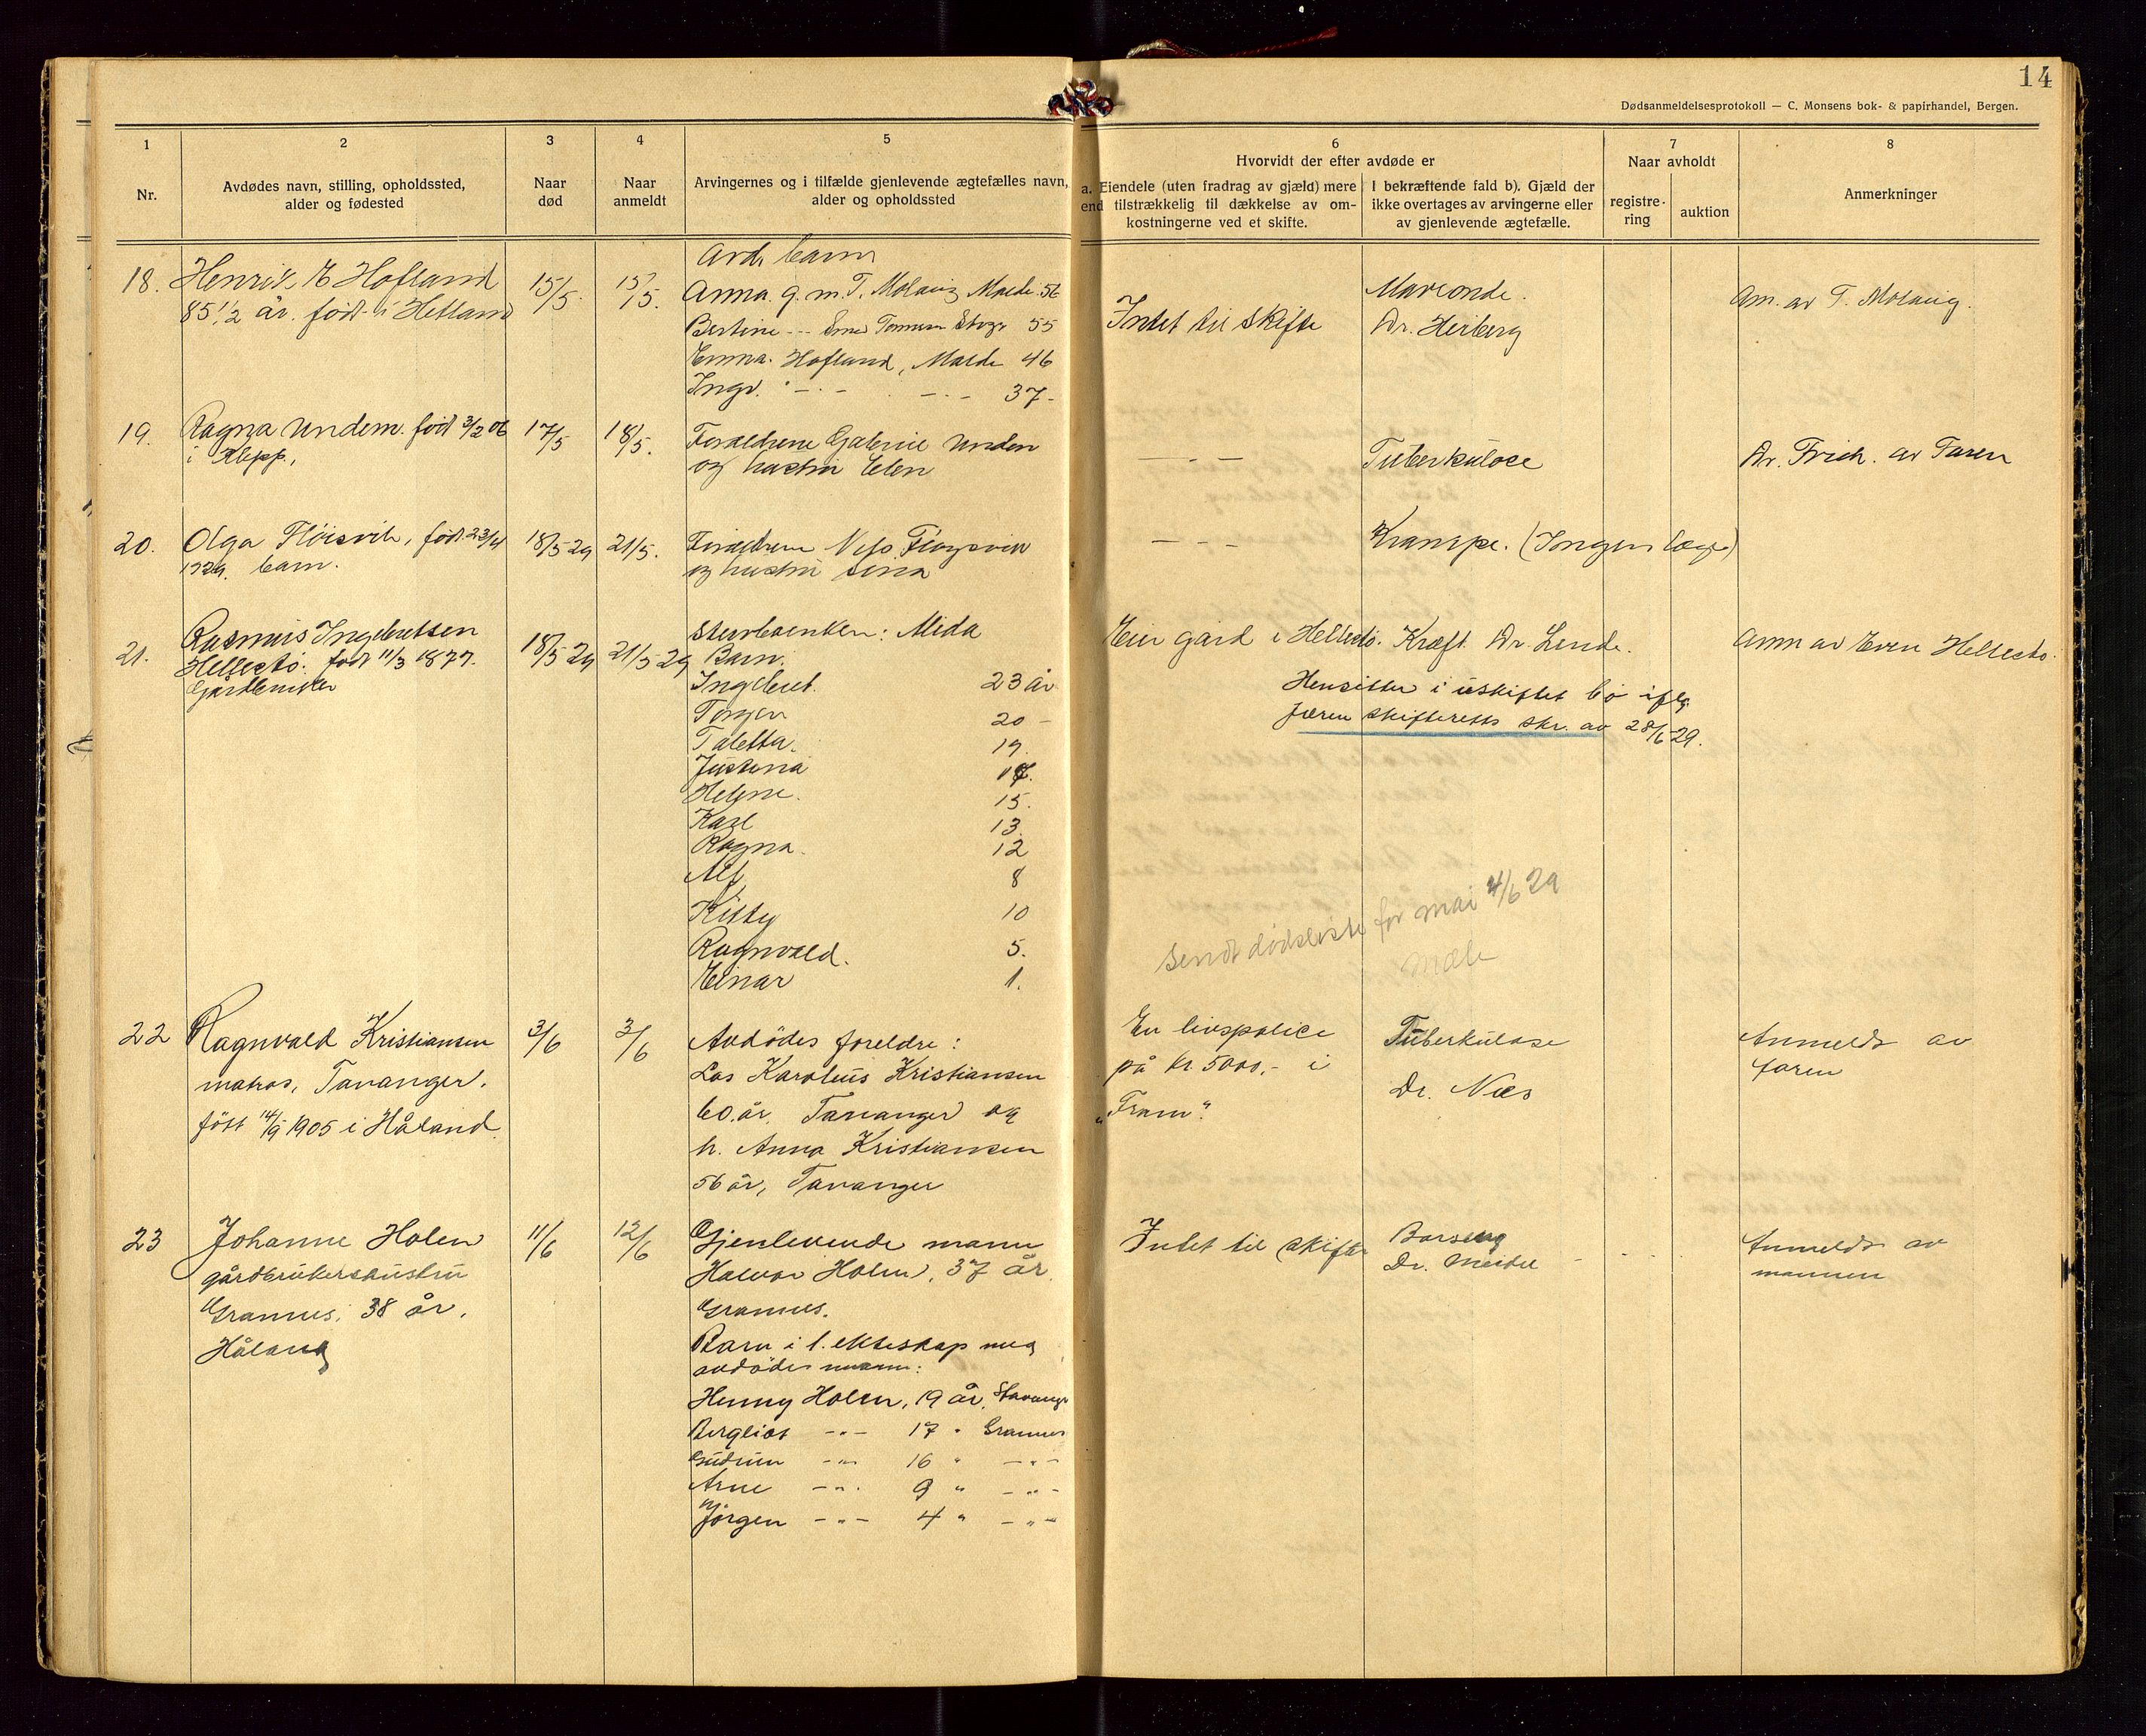 14
Dødsanmeldelsesprotokoll — C. Monsens bok- & papirhandel, Bergen.
1
Nr.
2
Avdødes navn, stilling, opholdssted,
alder og fødested
3
Naar
død
4
Naar
anmeldt
5
Arvingernes og i tilfælde gjenlevende ægtefælles navn,
alder og opholdssted
6
Hvorvidt der efter avdøde er
a. Eiendele (uten fradrag av gjæld) mere
end tilstrækkelig til dækkelse av om-
kostningerne ved et skifte.
I bekræftende fald b). Gjæld der
ikke overtages av arvingerne eller
av gjenlevende ægtefælle.
7
Naar avholdt
registre-
ring
auktion
8
Anmerkninger
18.
Henrik E Hofland
85 1/2 år. født i Hetland
15/5.
15/5.
Avd. barn
Anna g.m. T. Molaug Malde 56
Bertine 55
Emma Hofland, Malde 46
Ingv. - " - - " - 37-
Intet til skifte
Dr. Heiberg
Am. av T. Molaug.
19.
Ragna Undem. født 3/2 06
i Klepp,
17/5
18/5.
Foreldrene Gabriel Undem
og hustru Elen
- " -
Tuberkulose
Dr. Frich. av Faren
20.
Olga Fløisvik, født 23/4
1929. barn.
18/5 29
21/5.
Foreldrene Nils Fløysvik
og hustru Sina
- " -
Krampe. (Ingen læge)
21.
Rasmus Ingebretsen
Hellestø. født 11/3 1877.
Gårdbruker
18/5 29
21/5 29
Sterboenken: Alida
Barn.
Ingebret. 23 år
Torger 20 -
Taletta. 19.
Justina
Helene. 15.
Karl 13.
Ragna. 12
Alf 8
Kitty 10
Ragnvald. 5.
Einar 1.
Eier gård i Hellestø.
Kræft Dr. Lende.
Hensitter i uskiftet bo iflg.
Jæren skifteretts skr. av 28/6 29.
Anm av Even Hellestø.
Sendt dødsliste for mai 4/6 29
22
Ragnvald Kristiansen
matros, Tananger.
født 14/9 1905 i Håland.
3/6
3/6
Avdødes foreldre:
Los Karolius Kristiansen
60. år, Tananger og
h. Anna Kristiansen
56 år, Tananger
En livspolice
på kr 5000,- i
"Fram".
Tuberkulose
Dr. Næs
Anmeldt av
faren
23
Johanne Holen
gårdbrukershustru
Grannes, 38 år,
Håland
11/6
12/6
Gjenlevende mann
Halvor Holen, 37 år
Grannes.
Barn i 1. ekteskap med
avdødes mann:
Henny Holen, 19 år, Stavanger
Bergliot - " - 17 " Grannes
Gudrun - " - 16 " - " -
Arne - " - 9 " - " -
Jørgen - " - 4 " - " -
Intet til skifte
Barseng
Dr. Meidel
Anmeldt av
mannen